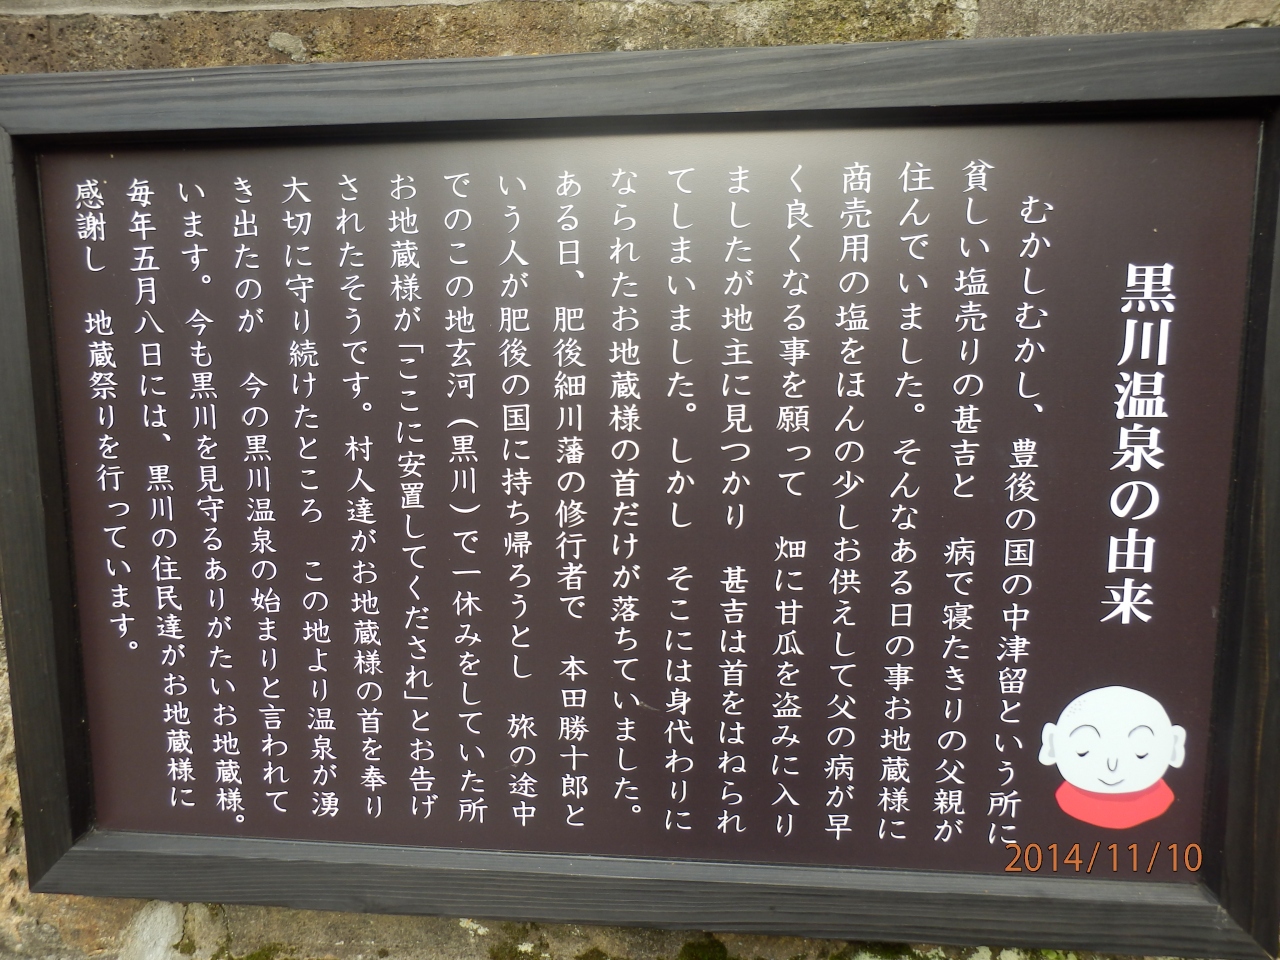 黒川温泉の由来
むかしむかし、豊後の国の中津留という所に
貧しい塩売りの甚吉と 病で寝たきりの父親が
住んでいました。そんなある日の事お地蔵様に
商売用の塩をほんの少しお供えして父の病が早
く良くなる事を願って 畑に甘瓜を盗みに入り
ましたが地主に見つかり 甚吉は首をはねられ
てしまいました。しかし そこには身代わりに
なられたお地蔵様の首だけが落ちていました。
ある日、肥後細川藩の修行者で 本田勝十郎と
いう人が肥後の国に持ち帰ろうとし 旅の途中
でのこの地玄河（黒川）で一休みをしていた所
お地蔵様が「ここに安置してくだされ」とお告げ
されたそうです。村人達がお地蔵様の首を奉り
大切に守り続けたところ この地より温泉が湧
き出たのが 今の黒川温泉の始まりと言われて
います。今も黒川を見守るありがたいお地蔵様。
毎年五月八日には、黒川の住民達がお地蔵様に
感謝し 地蔵祭りを行っています。
2014/11/10